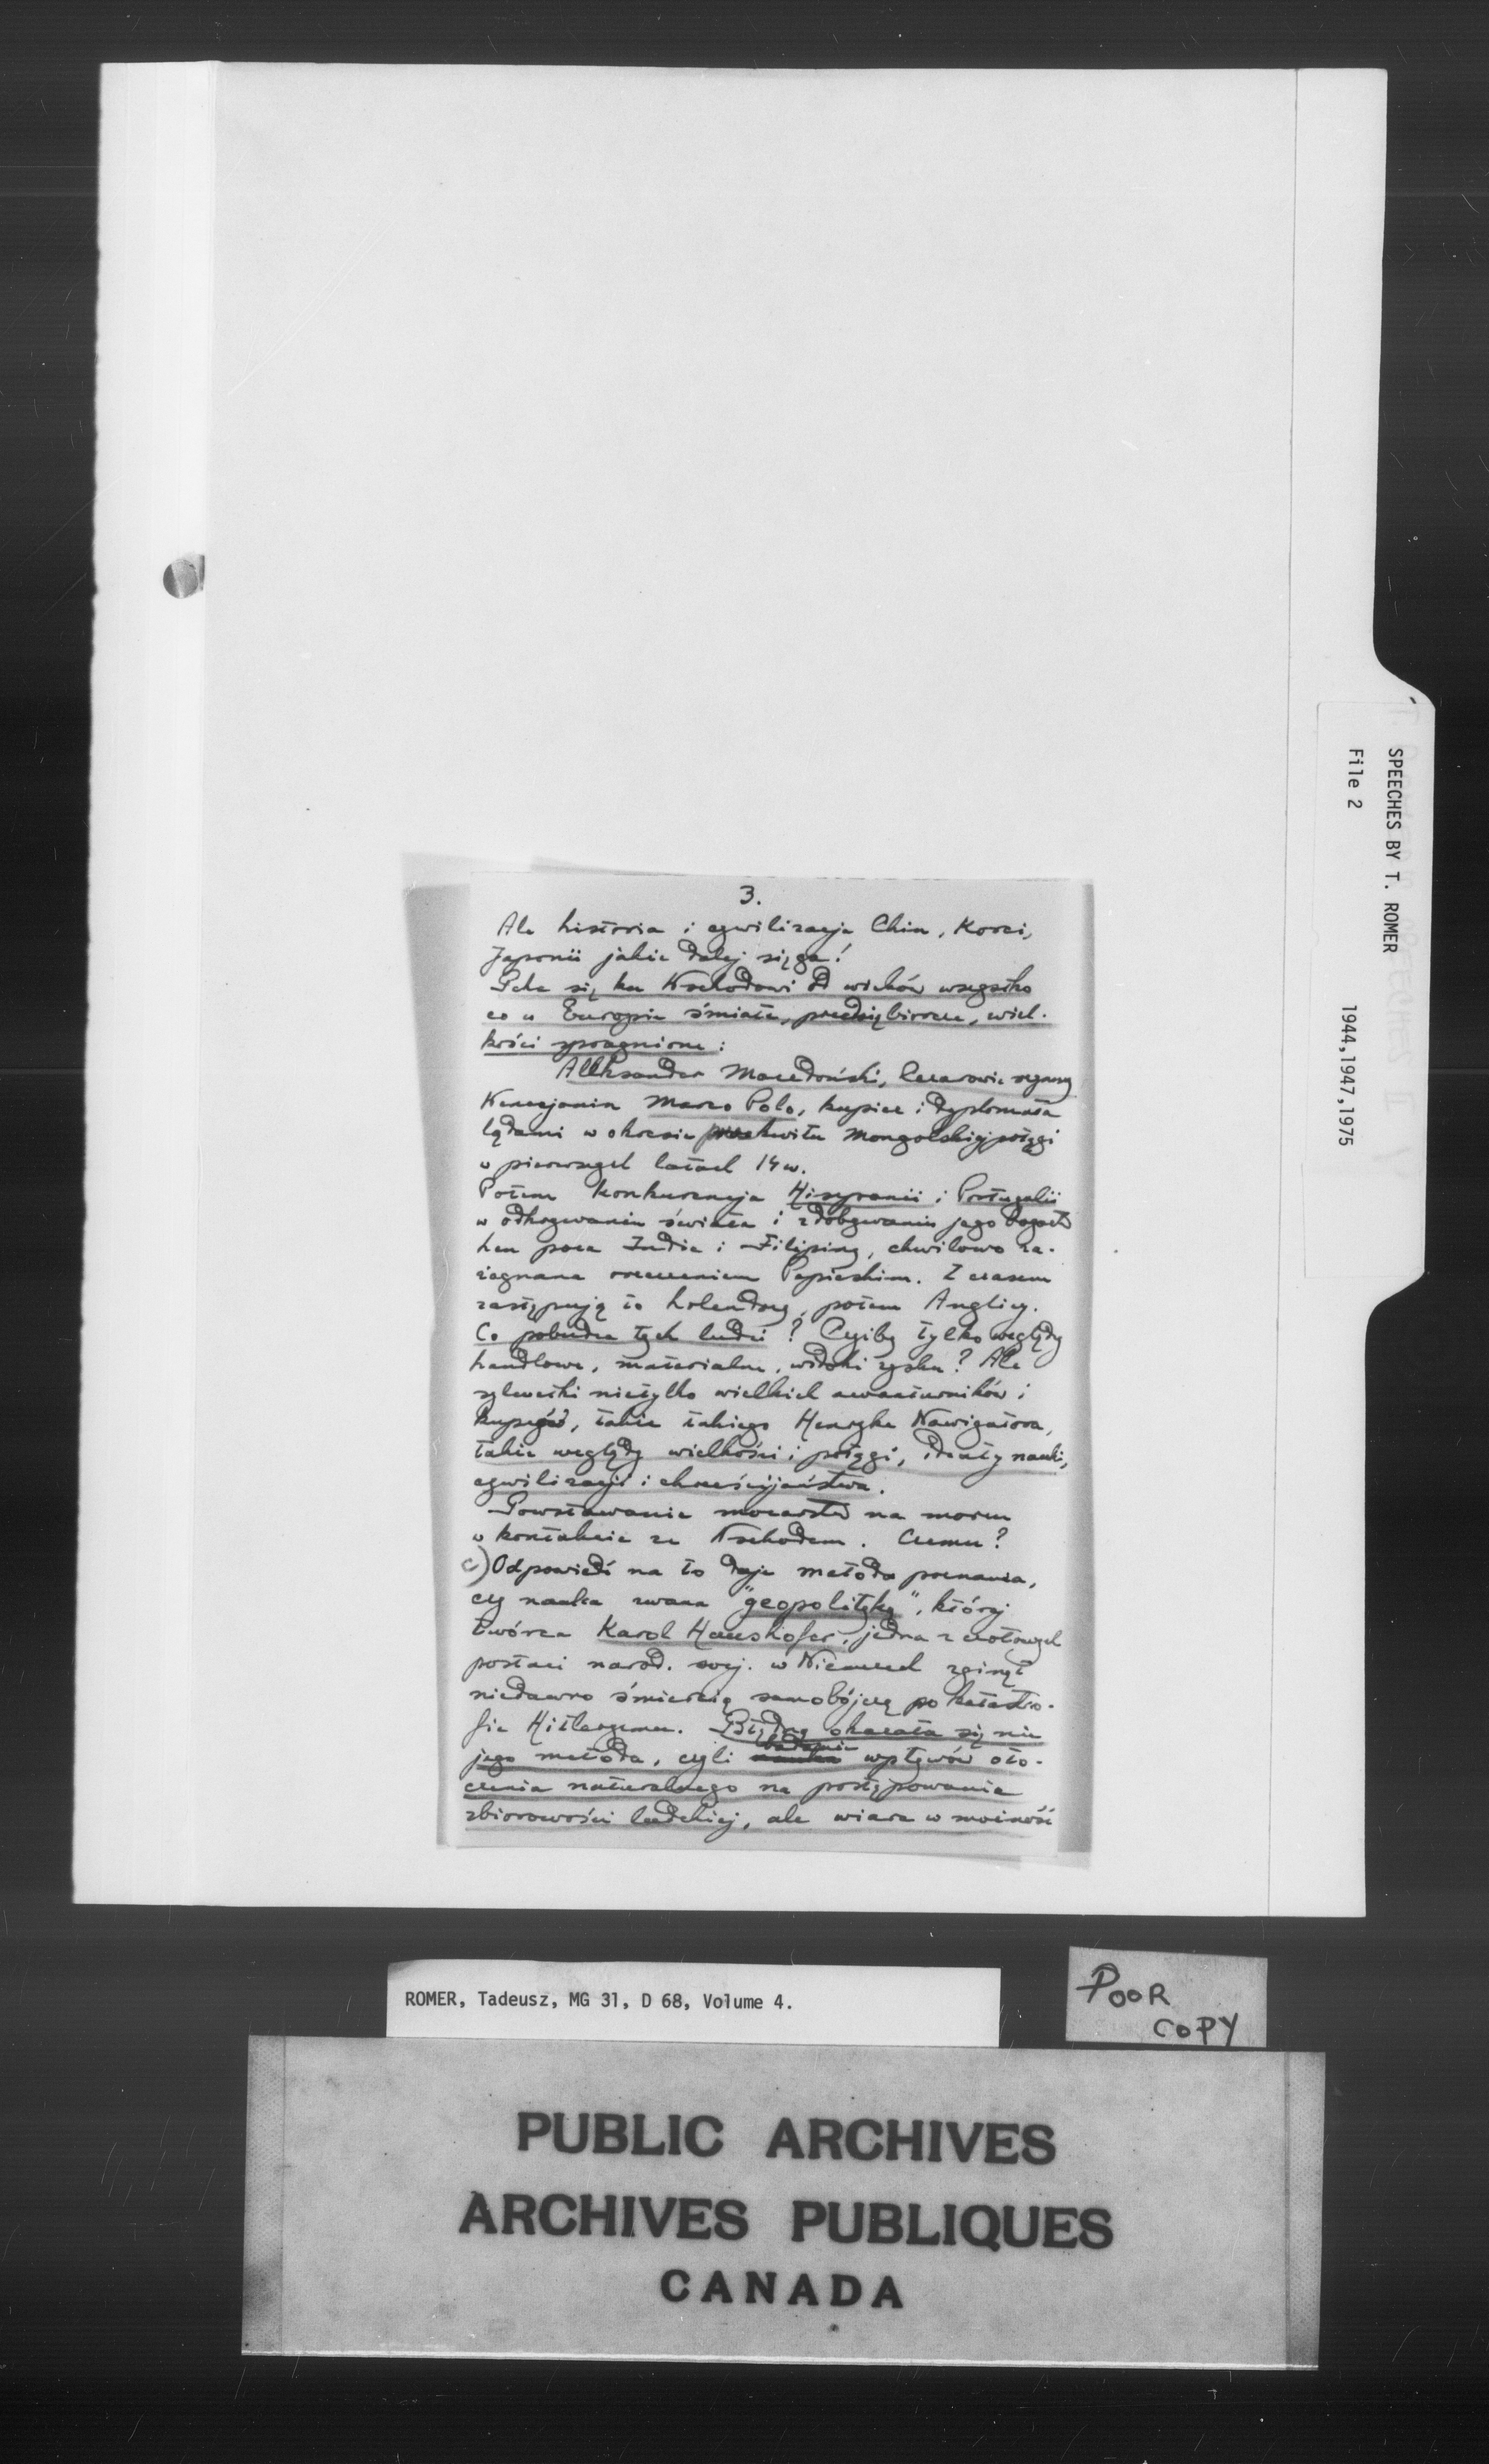 3.
Ale historia i cywilizacja Chin, Korei,
Japonii jakże dalej sięga!
Pcha się ku Wschodowi od wieków wszystko
co w Europie śmiałe, przedsiębiorcze, wiel-
kości spragnione:
Aleksander Macedoński, Cezarowie rzymscy
Wenecjanin Marco Polo, kupiec i dyplomata
lądami w okresie rozkwitu Mongolskiej potęgi
w pierwszych latach 14 w.
Potem konkurencja Hiszpanii i Portugalii
w odkrywaniu świata i zdobywaniu jego bogactw
hen poza Indie i Filipiny, chwilowo za-
żegnana orzeczeniem Papieskim. Z czasem
zastępują to holendrzy, potem Anglicy.
Co pobudza tych ludzi? Czyżby tylko względy
handlowe, materialne, widoki zysku? Ale
sylwetki nietylko wielkich awanturników i
kupców, także takiego Henryka Nawigatora,
także względy wielkości i potęgi, ideały nauki,
cywilizacji i chrześcijaństwa.
Powstawanie mocarstw na morzu
w kontakcie ze Wschodem. Czemu?
c) Odpowiedź na to daje metoda poznania,
czy nauka zwana "geopolityką", której
twórca Karol Haushofer, jedna z czołowych
postaci narod. socj. w Niemczech zginął
niedawno śmiercią samobójczą po katastro-
fie Hitleryzmu. Błędną okazała się nie
jego metoda, czyli badanie wpływów oto-
czenia naturalnego na postępowanie
zbiorowości ludzkiej, ale wiara w możność
SPEECHES BY T. ROMER
File 2 1944,1947,1975
ROMER, Tadeusz, MG 31, D 68, Volume 4.
POOR
COPY
PUBLIC ARCHIVES
ARCHIVES PUBLIQUES
CANADA